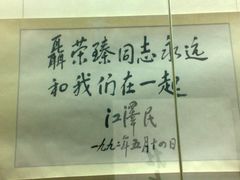 聶荣臻同志永远
和我们在一起
江泽民
一九九二年五月十四日